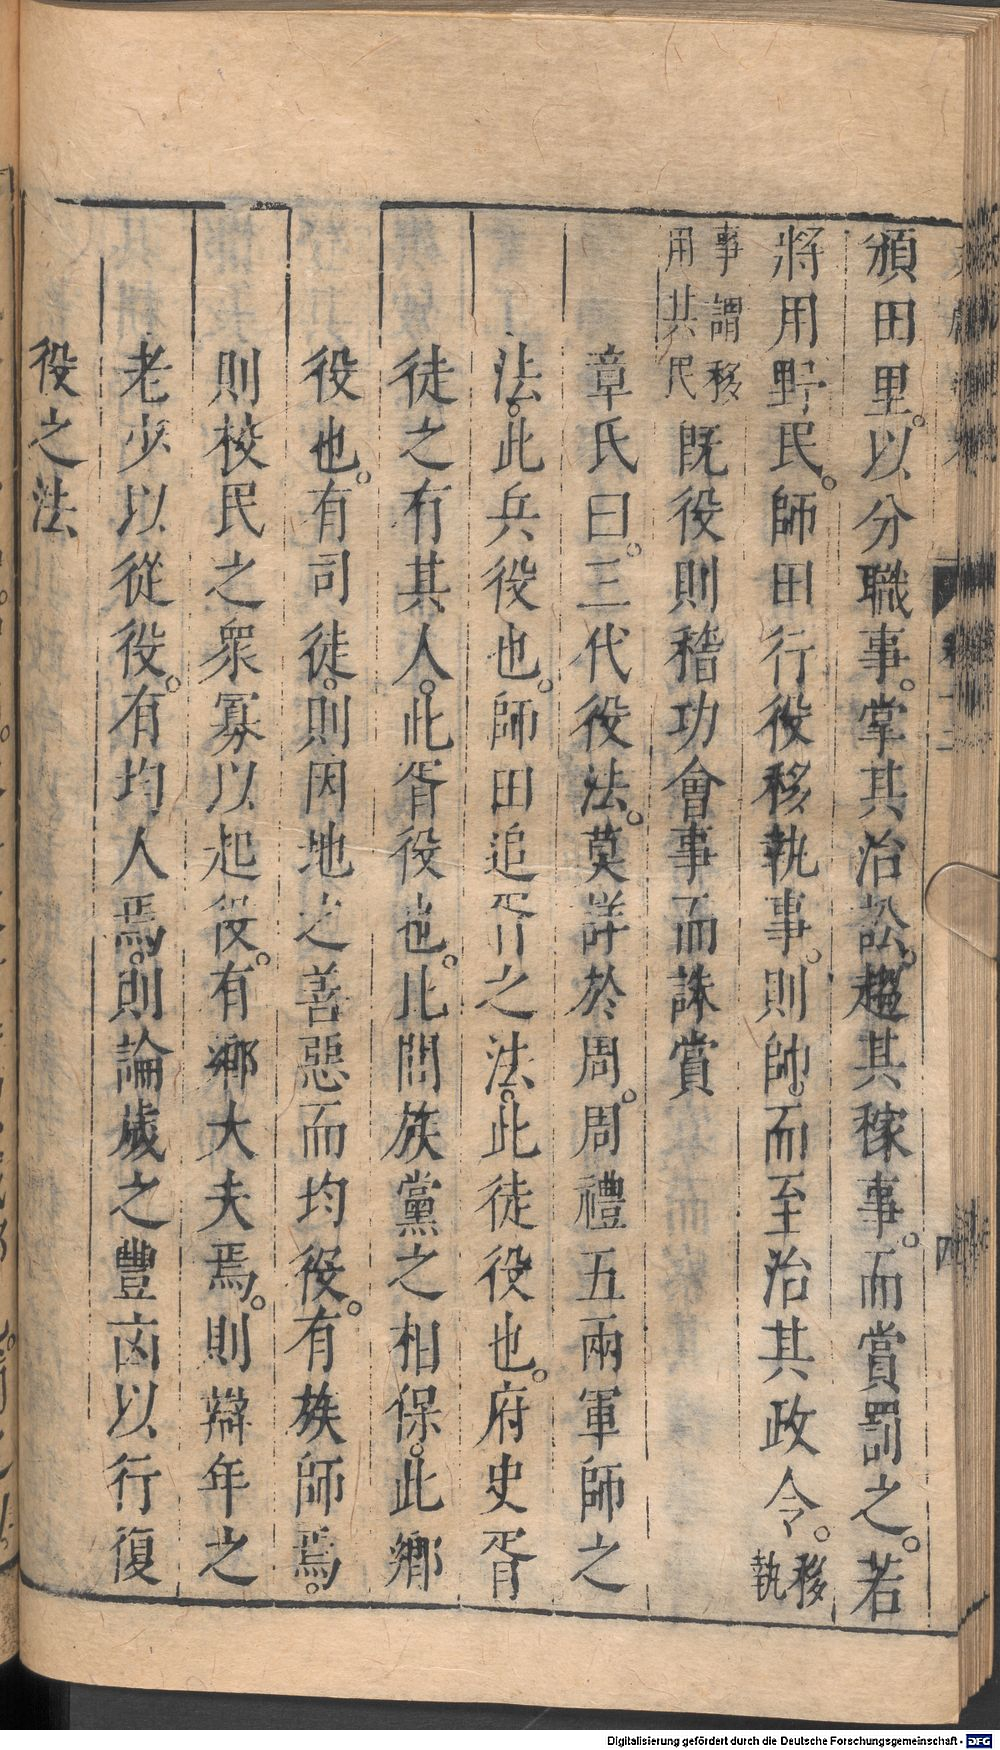 頒田里。以分職事。掌其治訟。趨其稼事。而賞罰之。若
將用野民。師田行役移執事。則帥而至治其政令。移執
事謂移用其民既役則稽功會事而誅賞
章氏曰。三代役法。莫詳於周。周禮五兩軍師之
法。此兵役也。師田追胥之法。此徒役也。府史胥
徒之有其人。此胥役也。比閭族黨之相保。此鄉
役也。有司徒。則因地之善惡而均役。有族師焉。
則校民之衆寡以起役。有鄉大夫焉。則辯年之
老少以從役。有均人焉。則論歲之豐凶以行復
役之法
Digitalisierung gefördert durch die Deutsche Forschungsgemeinschaft - DFG